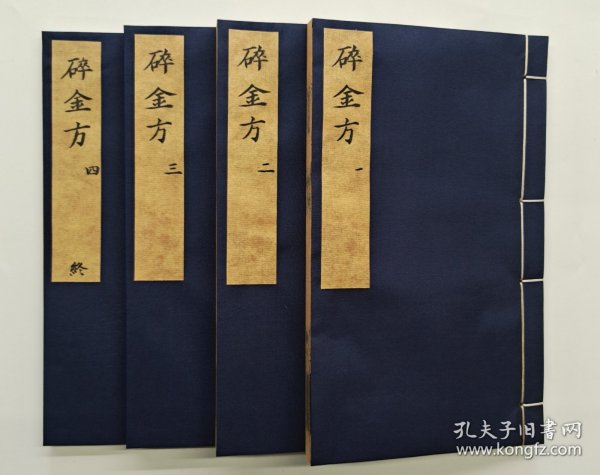 碎金方 一
碎金方 二
碎金方 三
碎金方 四 終
孔夫子旧书网
www.kongfz.com